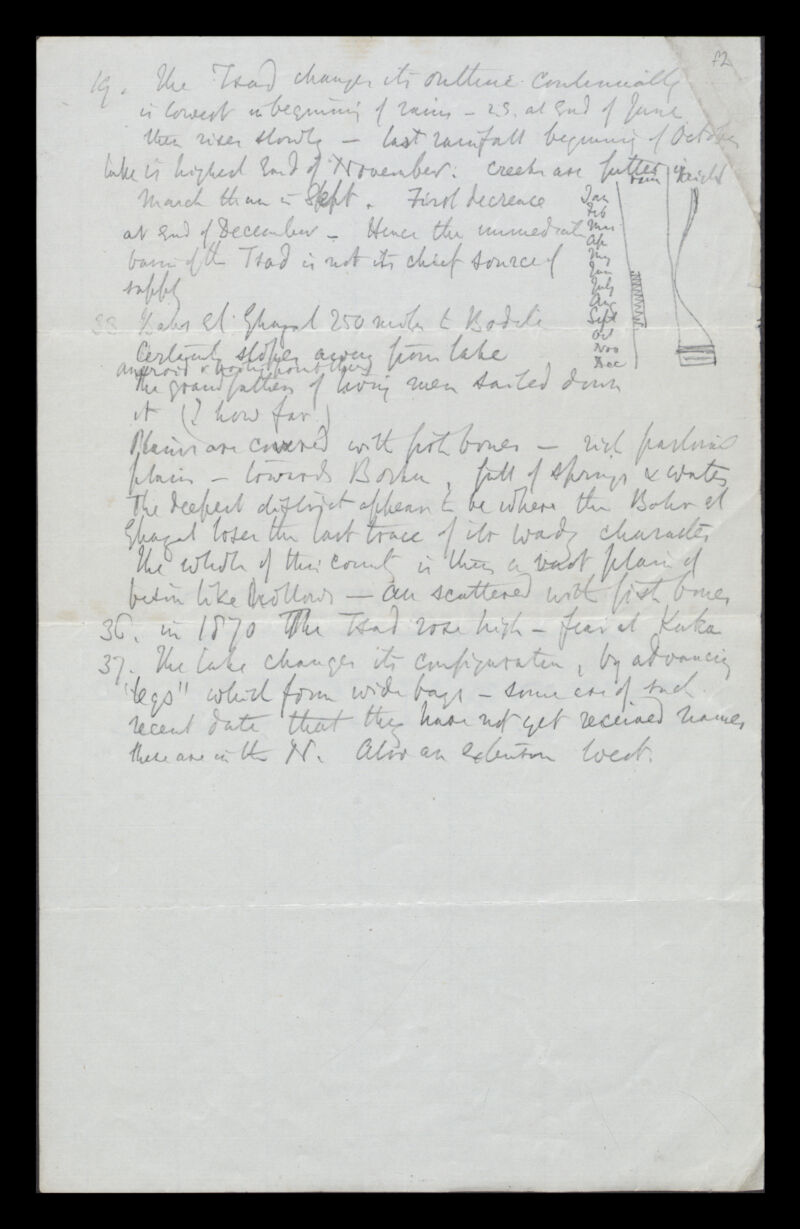 82
19. The Tsad changes its outline continually
is lowest in beginning of rains – i.e. at end of June
then rises slowly – last rainfall beginning of October
lake is highest End of November. creeks are fuller in
March than in Sept. First decrease
at end of December – Hence the immediate
basin of the Tsad is not its chief source of
supply
rain height
Jan
Feb
Mar
Ap
My
Jun
July
Aug
Sept
Oct
Nov
Dec
33 Bahr el Ghazal 250 miles to Bodele
Certainly slopes away from lake
aneroid & boiling point
The grandfathers of living men sailed down
it (? how far)
Plains are covered with fish bones – rich pastoral
plains – towards Borku, full of springs & water
The deepest district appears to be where the Bahr el
Ghazal loses the last trace of its wady character
The whole of this country is then a vast plain of
basin like hollows – all scattered with fish bones
36. in 1870 The Tsad rose high – fear at Kuka
37. The lake changes its configuration, by advancing
"legs" which form wide bays – some are of such
recent date that they have not yet received names
these are in the N. Also an extension West.